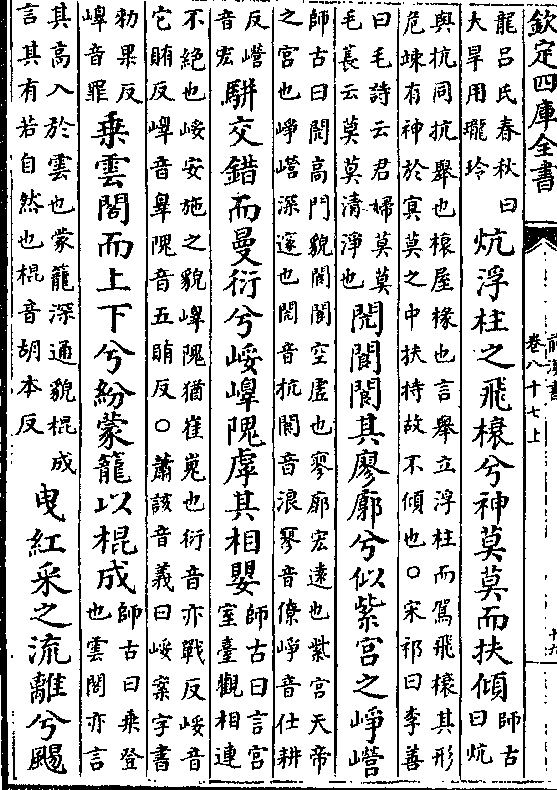 欽定四庫全書
卷八十七上
龍呂氏春秋曰
大旱用瓏玲
炕浮柱之飛榱兮神莫莫而扶傾
師古
曰炕
與抗同抗舉也榱屋椽也言舉立浮柱而駕飛榱其形
危竦有神於冥莫之中扶持故不傾也○宋祁曰李善
曰毛詩云君婦莫莫
毛萇云莫莫清淨也
閌閬閬其廖廓兮似紫宮之崢嶸
師古曰閌高門貌閬閬空虛也寥廓宏遠也紫宮天帝
之宮也崢嶸深邃也閌音抗閬音浪寥音僚崢音仕耕
反嶸
音宏
駢交錯而曼衍兮峻嶵隗虖其相嬰
師古曰言宮
室臺觀相連
不絶也峻安施之貌嶵隗猶崔嵬也衍音亦戰反峻音
它賄反嶵音辠隗音五賄反○蕭該音義曰峻案字書
勑果反
嶵音罪
乗雲閣而上下兮紛蒙籠以棍成
師古曰乗登
也雲閣亦言
其高入於雲也蒙籠深通貌棍成
言其有若自然也棍音胡本反
曳紅采之流離兮颺